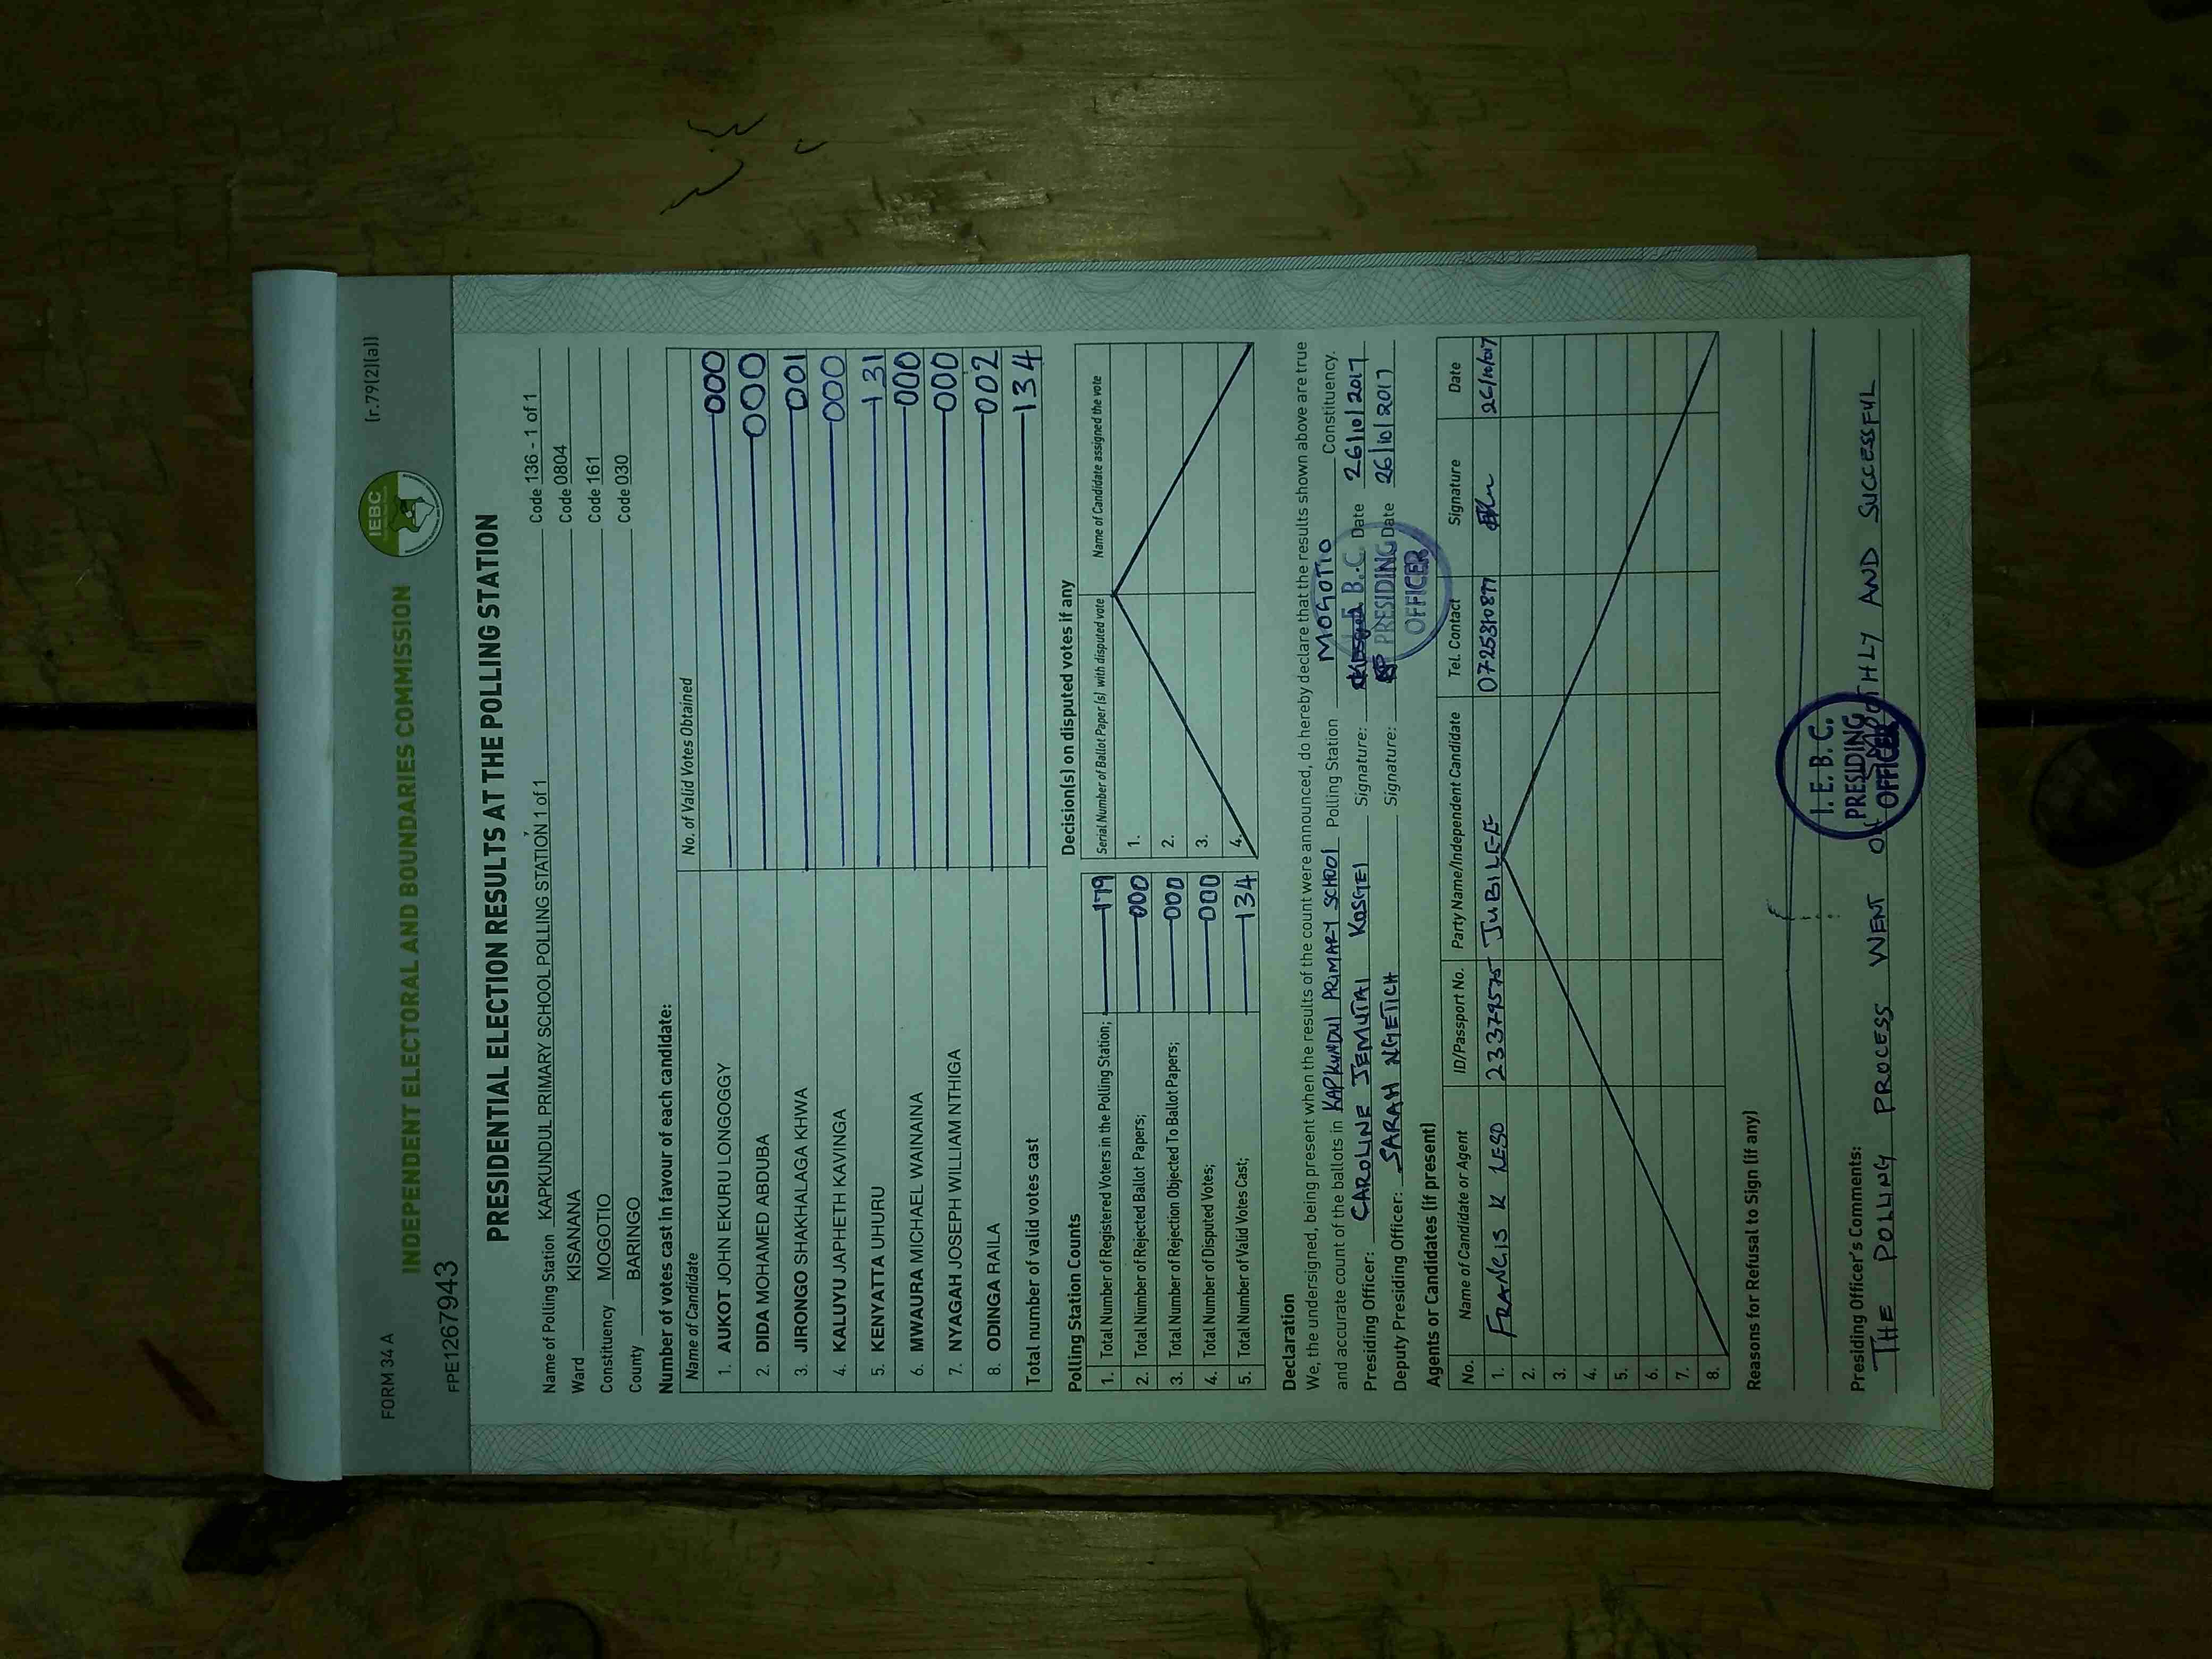 FORM 34 A
(r.79(2)(a))
INDEPENDENT ELECTORAL AND BOUNDARIES COMMISSION
IEBC
FPE1267943
PRESIDENTIAL ELECTION RESULTS AT THE POLLING STATION
Name of Polling Station KAPKUNDUL PRIMARY SCHOOL POLLING STATION 1 of 1 Code 136 - 1 of 1
Ward KISANANA Code 0804
Constituency MOGOTIO Code 161
County BARINGO Code 030
Number of votes cast in favour of each candidate:
Name of Candidate No. of Valid Votes Obtained
1. AUKOT JOHN EKURU LONGOGGY 000
2. DIDA MOHAMED ABDUBA 000
3. JIRONGO SHAKHALAGA KHWA 001
4. KALUYU JAPHETH KAVINGA 000
5. KENYATTA UHURU 131
6. MWAURA MICHAEL WAINAINA 000
7. NYAGAH JOSEPH WILLIAM NTHIGA 000
8. ODINGA RAILA 002
Total number of valid votes cast 134
Polling Station Counts
1. Total Number of Registered Voters in the Polling Station; 179
2. Total Number of Rejected Ballot Papers; 000
3. Total Number of Rejection Objected To Ballot Papers; 000
4. Total Number of Disputed Votes; 000
5. Total Number of Valid Votes Cast; 134
Decision(s) on disputed votes if any
Serial Number of Ballot Paper (s) with disputed vote Name of Candidate assigned the vote
1.
2.
3.
4.
Declaration
We, the undersigned, being present when the results of the count were announced, do hereby declare that the results shown above are true
and accurate count of the ballots in KAPKUNDUL PRIMARY SCHOOL Polling Station MOGOTIO Constituency.
Presiding Officer: CAROLINE JEMUTAI KOSGEI Signature: Date 26/10/2017
Deputy Presiding Officer: SARAH NGETICH Signature: Date 26/10/2017
B.C.
PRESIDING
OFFICER
Agents or Candidates (if present)
No. Name of Candidate or Agent ID/Passport No. Party Name/Independent Candidate Tel. Contact Signature Date
1. FRANCIS K 23379575 JUBILEE 26/10/2017
2.
3.
4.
5.
6.
7.
8.
Reasons for Refusal to Sign (if any)
Presiding Officer's Comments:
THE POLLING PROCESS WENT AND SUCCESSFUL
I.E.B.C.
PRESIDING
OFFICER